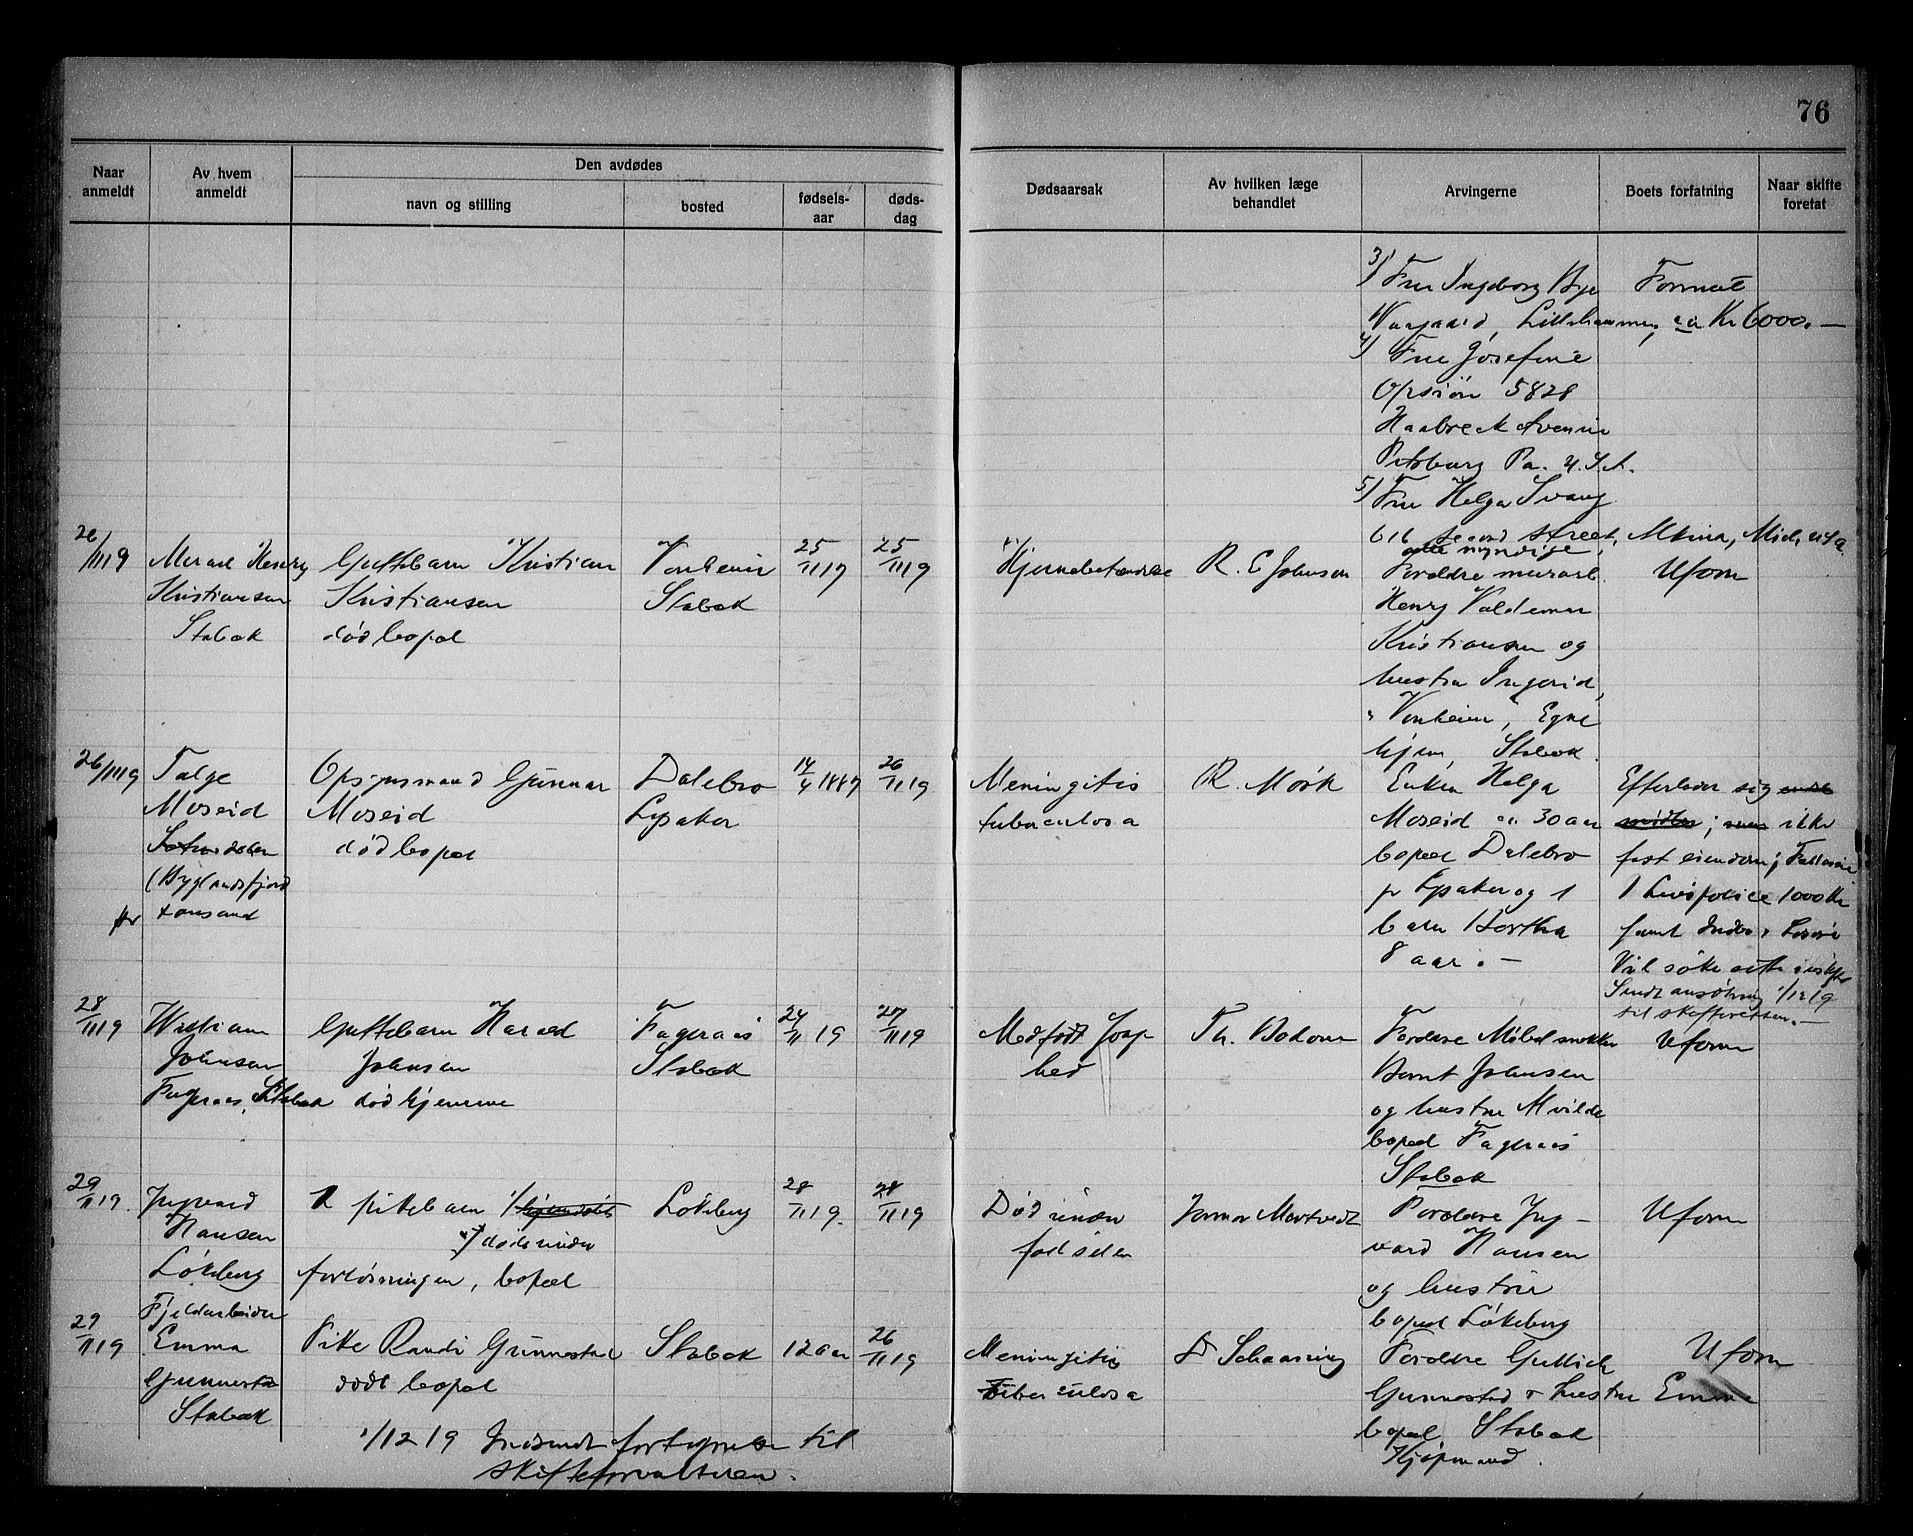 76
Naar anmeldt
Av hvem anmeldt
Den avdødes
navn og stilling
bosted
fødsels-aar
døds-dag
Dødsaarsak
Av hvilken læge behandlet
Arvingerne
Boets forfatning
Naar skifte foretat
3) Fru Ingeborg Bye
Lillehammer,
4) Fru Josefine
5828
Avenue
Pitsburg Pa. U.S.A.
5) Fru Helga Svang
616 Second Street, Mich. USA
alle myndige.
Formue
ca Kr 6000.-
26/1119
Henry
Kristiansen
Stabæk
Guttebarn Kristian
Kristiansen
død bopæl
Vonheim
Stabæk
25/1119
25/1119
Hjernebetændelse
R. C Johnson
Forældre murarb.
Henry Valdemar
Kristiansen og
hustru Ingerid,
Vonheim, Egne
hjem, Stabæk
Uform
26/1119
Talge
Moseid
(Byglandsfjord
Opsynsmand Gunnar
Moseid
død bopæl
Dalebro
Lysaker
26/1119
Meningitis
tuberculosa
R. Mörk
Enken Helga
Moseid 30 aar
bopæl Dalebro
pr Lysaker og 1
barn Bertha
8 aar.-
Efterlader sig
ikke
fast eiendom;
1 Livspolice 1000 Kr
samt Indbo, Løsøre
Sendt ansøkning 1/1219
til skifteretten.-
28/1119
William
Johnsen
Fageraas, Stabæk
Guttebarn Harald
Johnsen
død hjemme
Fageraas
Stabæk
24/11 19
27/1119
Medfødt
hed
Th. Bodom
Forældre Møbelsnekker
Bernt Johnsen
og hustru
bopæl Fageraas
Stabæk
Uform
29/1119.
Ingvard
Hansen
Løkeberg
Fjeldarbeider
1 pikebarn
døde under
forløsningen, bopæl
Løkeberg
28/1119.
28/1119
Død under
fødselen
Forældre Ing-
vard Hansen
og hustru
bopæl Løkeberg
Uform
29/1119
Emma
Gunnestad
Stabæk
Pike Randi Gunnestad
død bopæl
Stabæk
12 aar
26/1119
Meningitis
tuberculosa
D Schaanning
Forældre
Gunnestad & hustru Emma
bopæl Stabæk
Kjøpmand.
Uform
1/12 19 Indsendt fortegnelse til
skifteforvalteren.